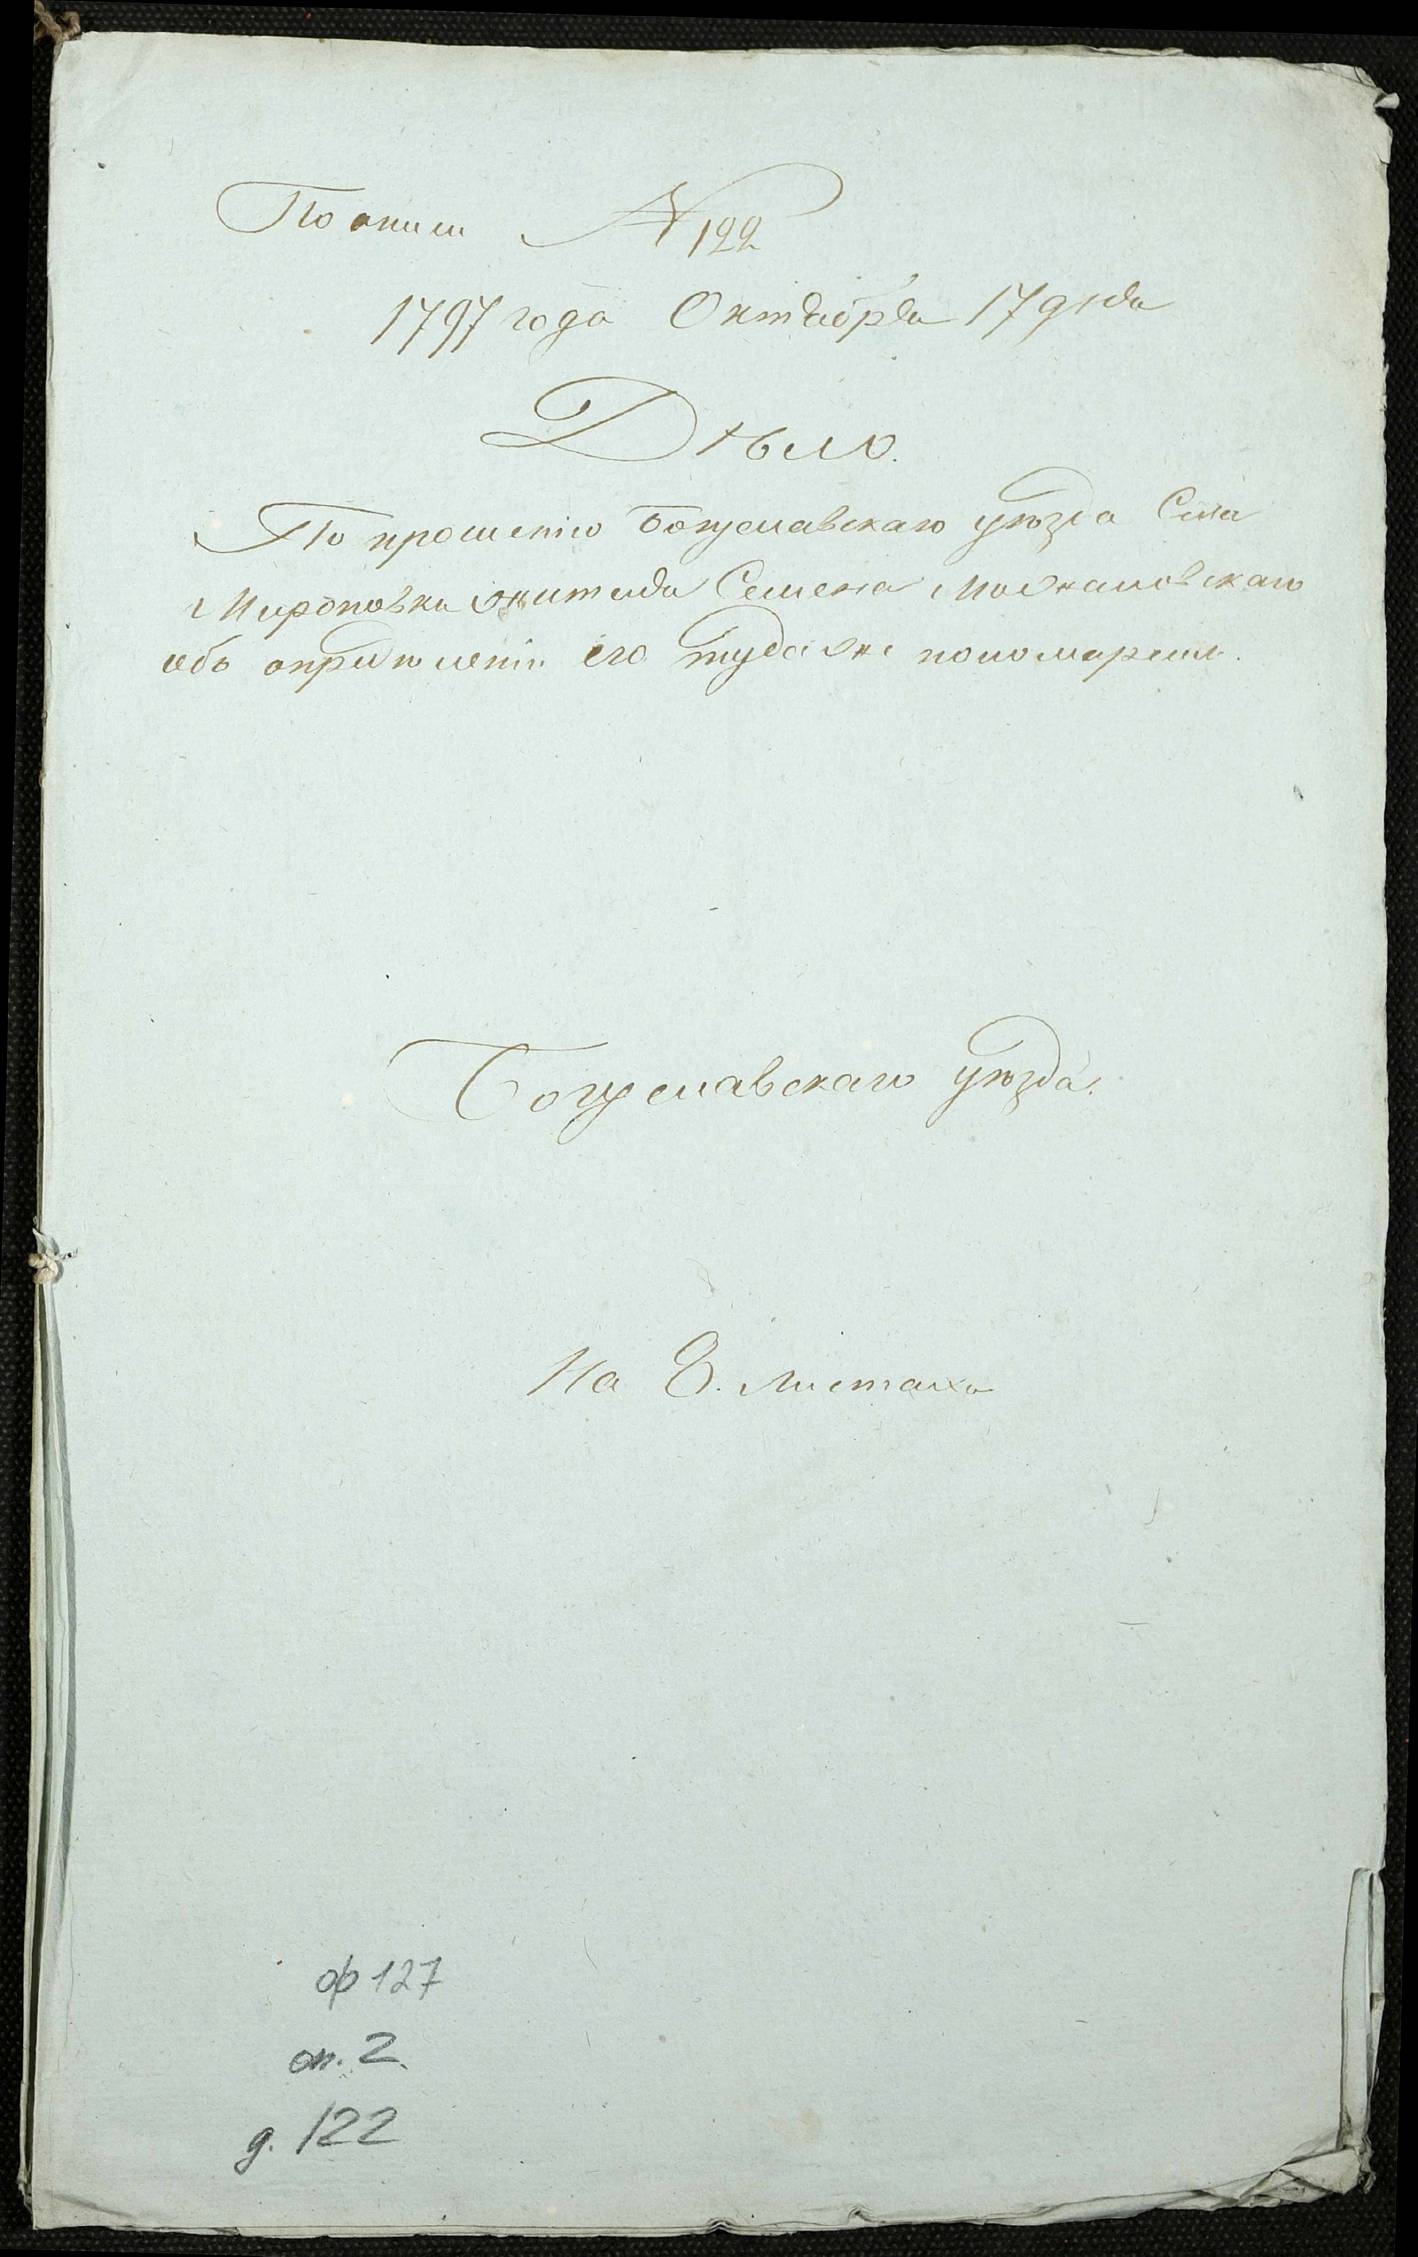 По описи № 122
1797 года Октября 17 дня
Дѣло.
По прошенію Богуславскаго уѣзда Села
Мироновки жителя Семена
объ опредѣленіи его туда же пономаремъ.
Богуславскаго уѣзда.
На 8. листахъ
ф 127
оп. 2.
д. 122